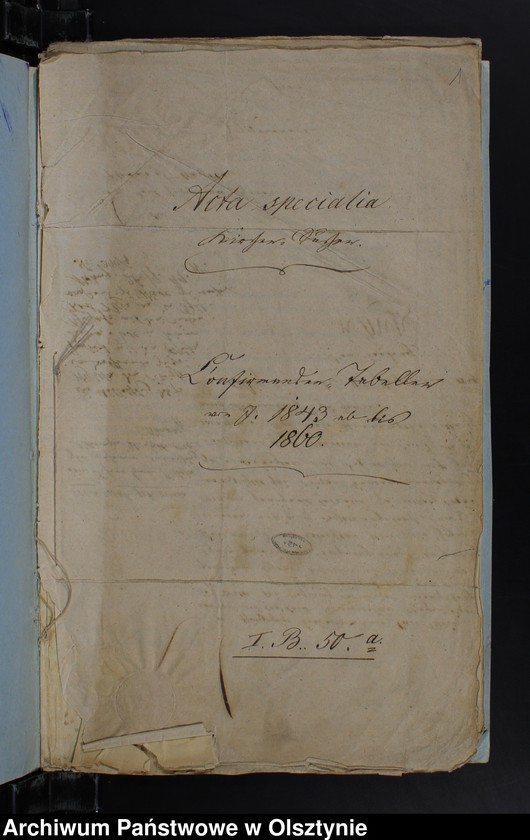 1
Acta specialia
Kirchen Sachen.
Confirmanden-Tabellen
von J. 1843 ab bis
1860.
I. B. 50. a.
Archiwum Państwowe w Olsztynie